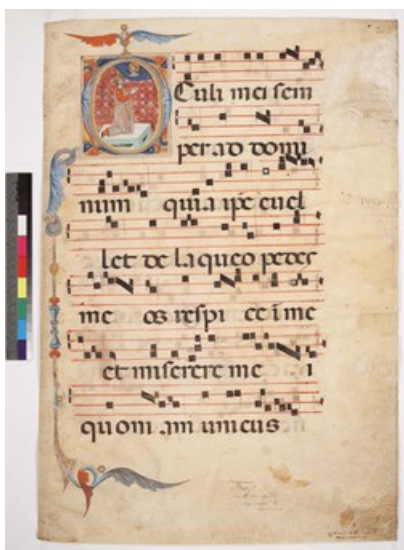 Oculi mei sem
per ad domi
num qui a ipe euel
let de la queo pedes
me os respi ce i me
et miserere me i
quoni am unicus